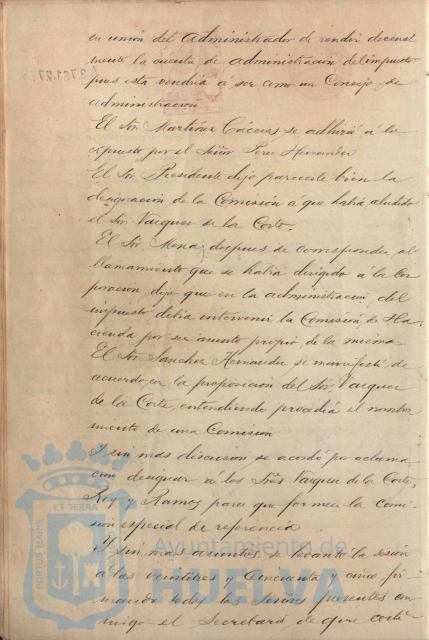 en unión del Administrador de rendir decenal
mente la cuenta de administración del impuesto
pues esta vendría á ser como un Consejo de
administración
El Sor. Martinez Cáceres se adhirió á lo
expuesto por el Señor Perez Hernandez
El Sr. Presidente dijo parecerle bien la
designación de la Comisión á que había aludido
el Sor. Vazquez de la Corte.
El Sr. Mena, despues de corresponder al
llamamiento que se había dirigido á la Cor
poracion, dijo que en la administracion del
impuesto debia intervenir la Comisión de Ha
cienda por ser asunto propio de la misma.
El Sor. Sanchez Hernandez se manifestó de
acuerdo con la proposicion del Sor. Vazquez
de la Corte, entendiendo procedía el nombra
miento de una Comisión
Y sin mas discusion se acordó por aclama
cion designar á los Sres Vazquez de la Corte,
Rey y Ramos para que formen la Comi
sión especial de referencia
Y sin mas asuntos se levantó la sesión
á las veintitres y cincuenta y cinco fir
mando todos los Señores presentes con
migo el Secretario de que certifº
PORTUS MARIS ET TERRAE
Ayuntamiento de
HUELVA